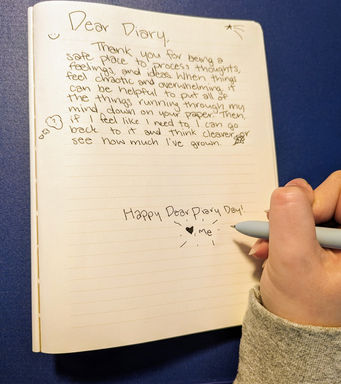 Dear Diary,
Thank you for being a
safe place to process thoughts,
feelings, and ideas. When things
feel chaotic and overwhelming, it
can be helpful to put all of
the things running through my
mind down on your paper. Then,
if I feel like I need to, I can go
back to it and think clearer, or
see how much I've grown.
Happy Dear Diary Day!
♥, me